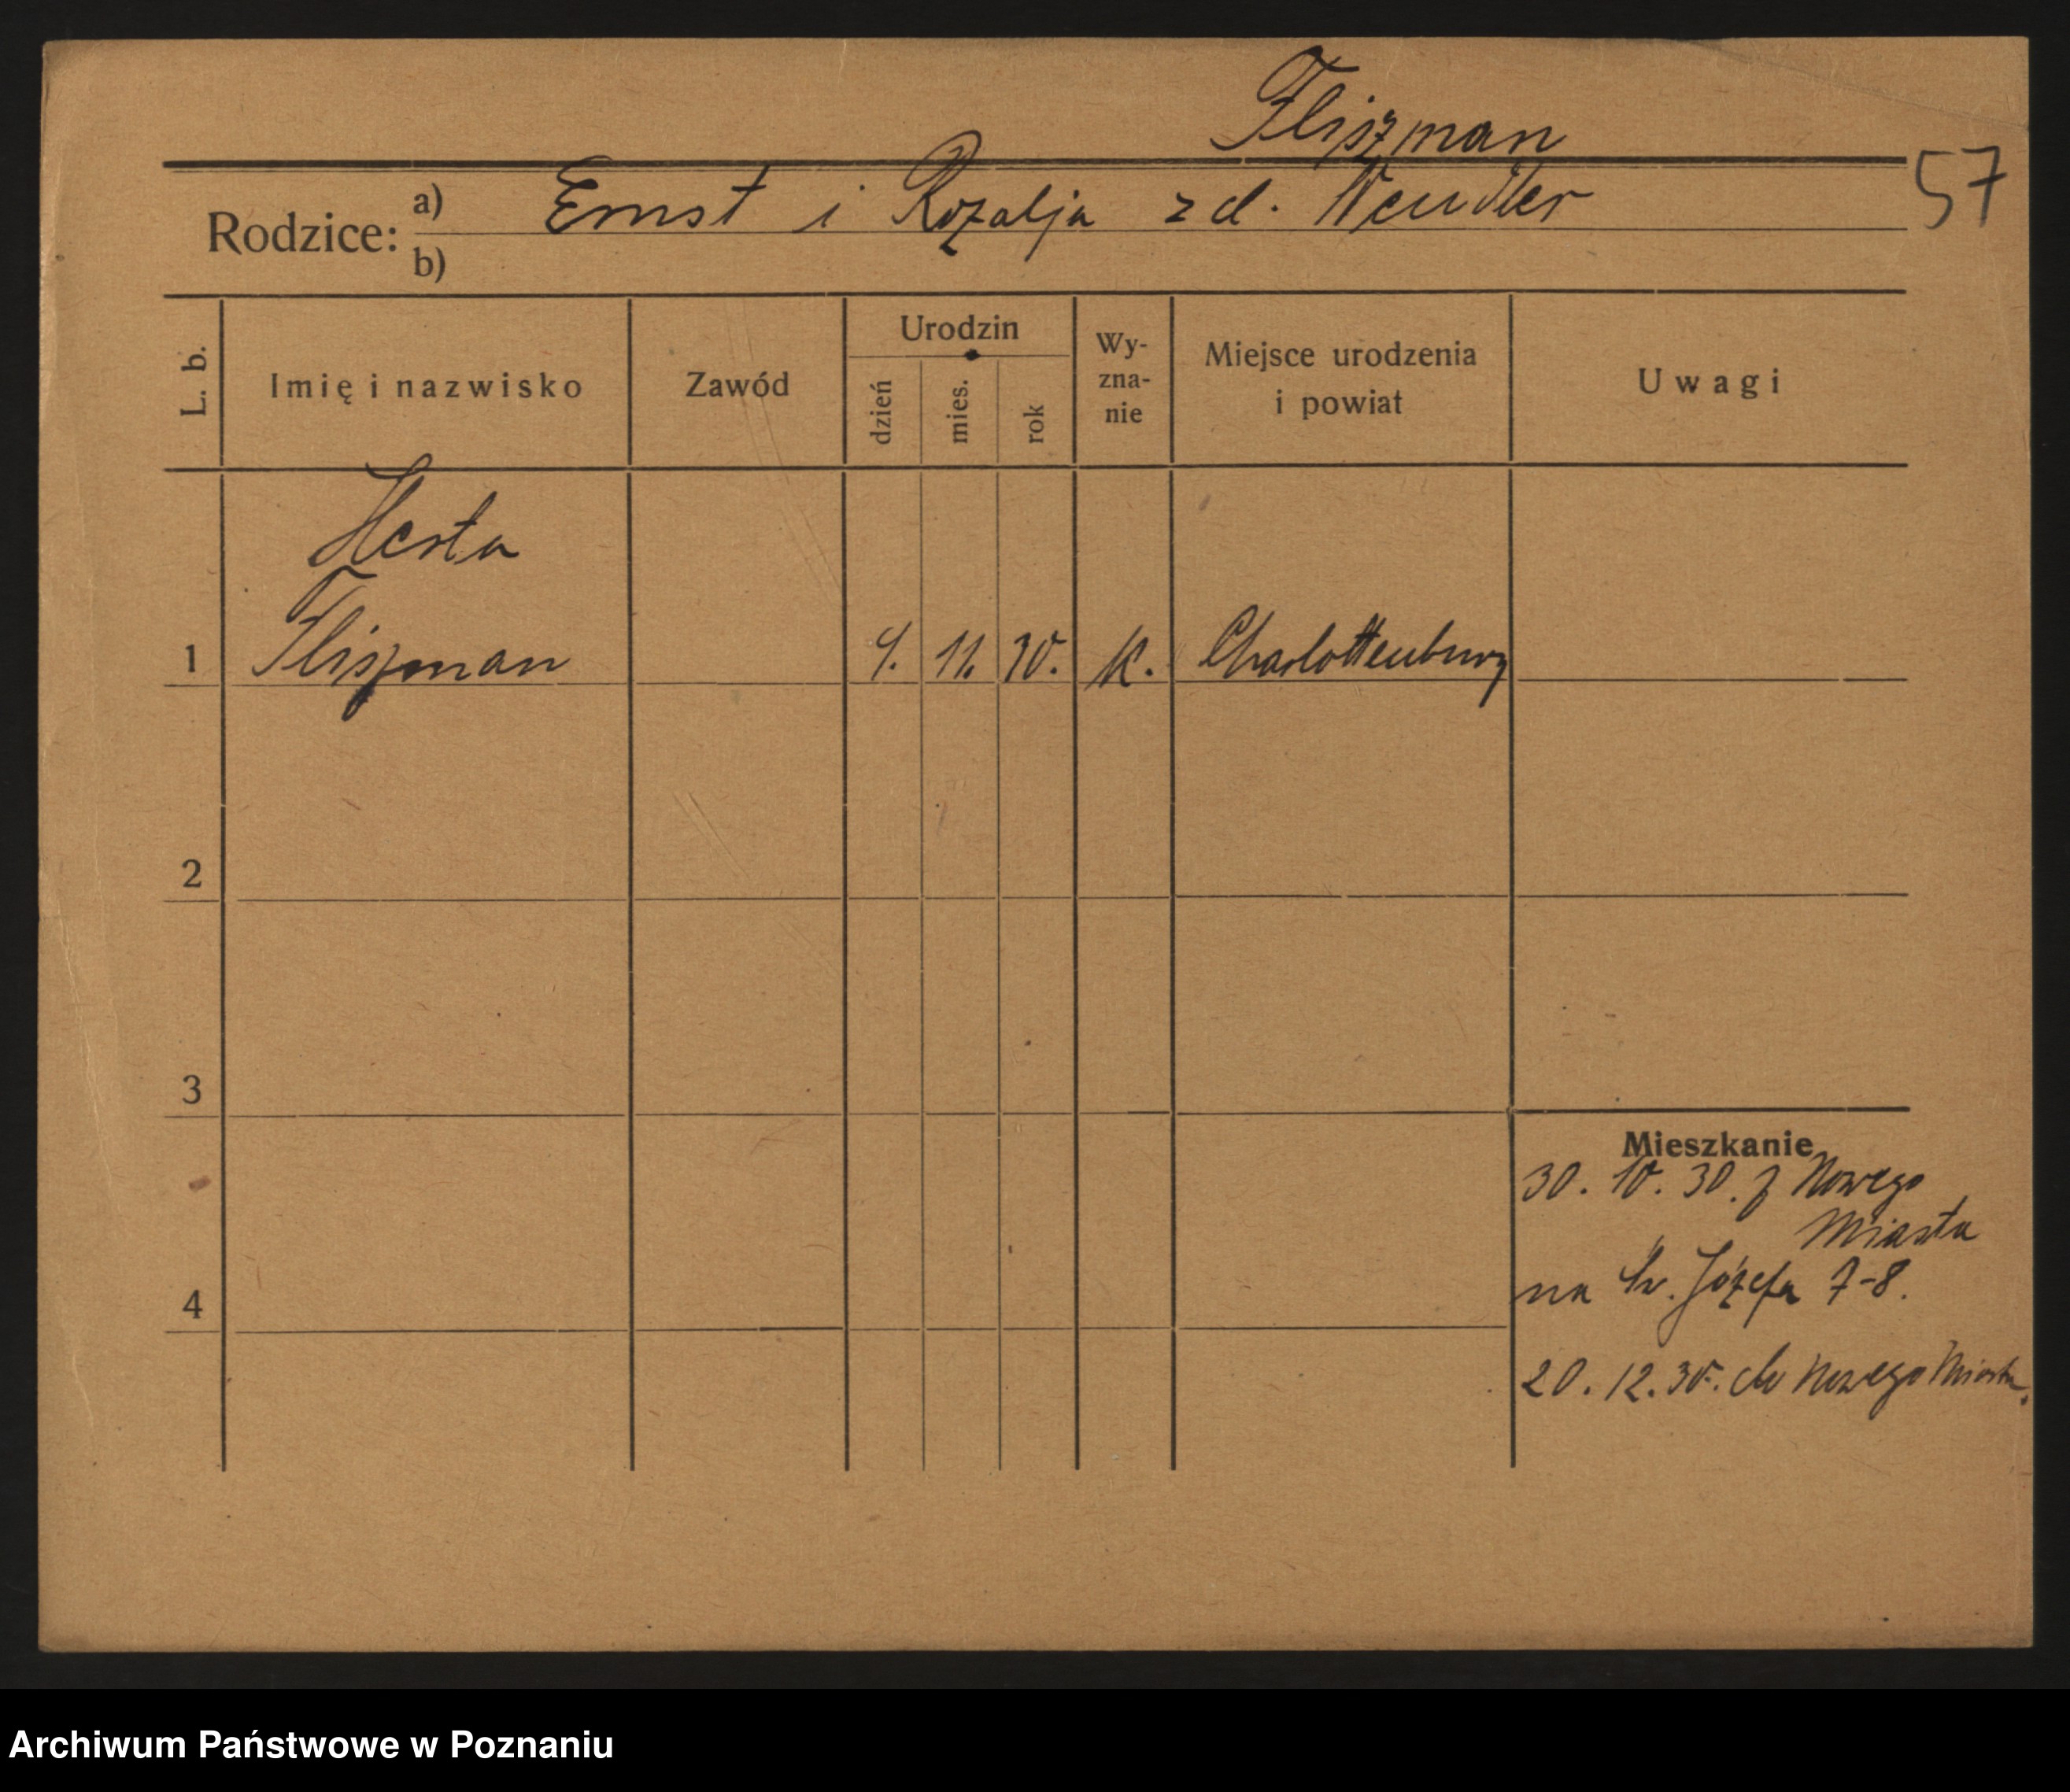 Fliszman
57
Rodzice: a) Ernst i Rozalja z d. Wendler
b)
L. b.
Imię i nazwisko
Zawód
Urodzin
dzień
mies.
rok
Wy-
zna-
nie
Miejsce urodzenia
i powiat
Uwagi
Herta
1 Fliszman 9. 11. 30. k. Charlottenburg
2
3
4
Mieszkanie
30. 10. 30. z Nowego
Miasta
na Św. Józefa 7-8.
20. 12. 30. do Nowego Miasta.
Archiwum Państwowe w Poznaniu